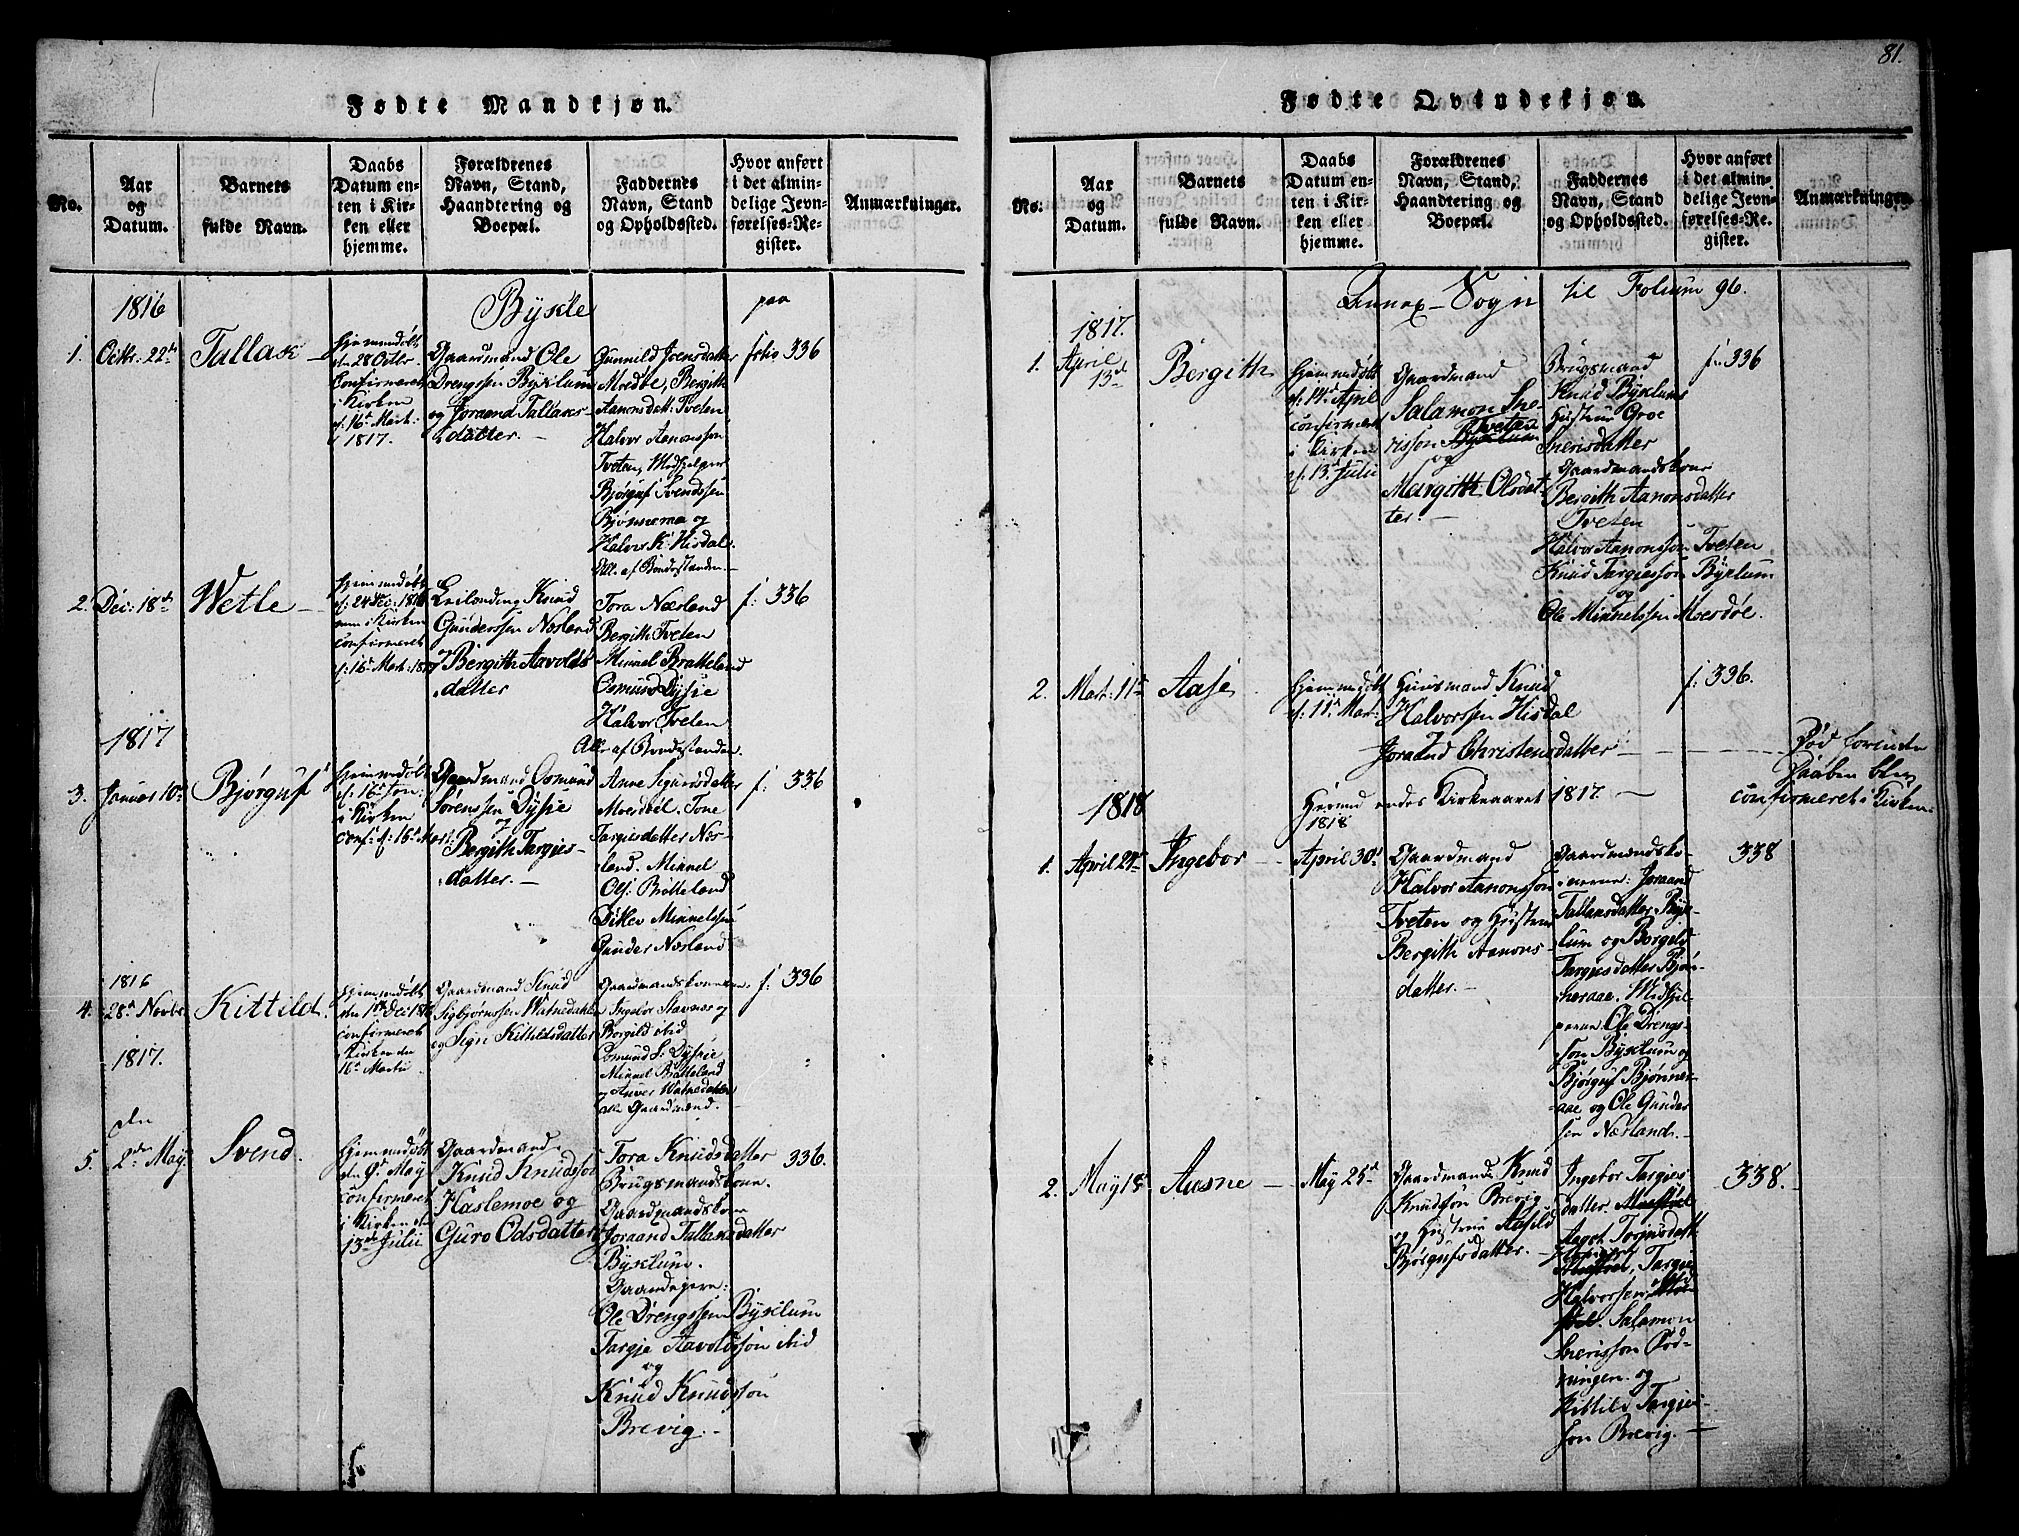 81.
Fødte Mandkjøn.
No.
Aar
og
Datum.
Barnets
fulde Navn.
Daabs
Datum en-
ten i Kir-
ken eller
hjemme.
Forældrenes
Navn, Stand,
Haandtering og
Boepæl.
Faddernes
Navn, Stand
og Opholdssted.
Hvor anført
i det almin-
delige Jevn-
førelses-Re-
gister.
Anmærkninger.
1816
Bykle
paa
1.
Octbr: 22de
Tallak
Hjemmedøbt
d. 28 Octbr
Confirmeret
i Kirken
d: 16de Mart:
1817.
Gaardmand Ole
Drengssen Byklum
og Joraand Tallaks-
datter.
Gunnild Joensdatter
Moedøe, Bergith
Aanonsdatt. Tveten
Halvor Aanonssøn
Tveten, Medhjelper
Bjørguf Svendssen
Bjønnerna og
Halvor K: Hisdal.
Alle af Bondestanden.
folio 336
2.
Dec: 18de
Wetle
Hjemmedøbt
d: 24 Dec: 1816
i Kirken
confirmeret
d: 16de Mart: 1817
Leilænding Knud
Gunderssen Nosland
Bergith Aavolds-
datter
Tora Næsland
Bergith Tveten
Mikkel Bratteland
Osmund Dysje
Halvor Tveten
Alle af Bondestanden.
f: 336
1817
3.
Januar 10de
Bjørguf
Hjemmedøbt
d: 16de Jan:
i Kirken
conf: d: 16de Mart:
Gaardmand Osmund
Sørenssen Dysje
og
Bergith Targies-
datter.
Anne Sigursdatter
Moedøl. Tone
Targiesdatter Nos-
land. Mikkel
Ols: Bratteland
Ditlev Mikkelssen
Gunder Nosland
f: 336
1816
4.
28de Novbr
Kittild
Hjemmedøbt
den 1ste Dec: 1816
confirmeret
i Kirken den
16de Martii
Gaardmand Knud
Sigbjørnssen Watnedalen
og Sign Kittildsdatter
Gaardmandskonerne
Ingebor Stavnes og
Borgild ibid
Osmund S: Dysje
Mikkel Bratteland
og Anver Watnedalen
alle Gaardmænd.
f: 336
1817.
den
5.
2den May
Svend.
Hjemmedøbt
den 9de May
confirmeret
i Kirken den
13de Julii
Gaardmand
Knud Knudssøn
Haslemoe og
Guro Odsdatter
Tora Knudsdatter
Brugsmandskone.
Gaardmandskone
Joraand Tallaksdatter
Byklum.
Gaardegere:
Ole Drengssen Byklum
Targje Aavoldssøn ibid
og
Knud Knudssøn
Brevig.
336.
Fødte Qvindekjøn.
No.
Aar
og
Datum.
Barnets
fulde Navn.
Daabs
Datum en-
ten i Kir-
ken eller
hjemme.
Forældrenes
Navn, Stand,
Haandtering og
Boepæl.
Faddernes
Navn, Stand
og Opholdssted.
Hvor anført
i det almin-
delige Jevn-
førelses-Re-
gister.
Anmærkninger.
Annex-Sogn til Folium 96.
1817.
1.
April
13de
Bergith
Hjemmedøbt
d: 14de April
confirmeret
i Kirken
d: 13de Julii
Gaardmand
Salamon Sne-
rissøn Tveten
og
Margith Olsdat-
ter.
Brugsmand
Knud Byklums
Hustrue Groe
Snerisdatter
Gaardmandskone
Bergith Aanonsdatter
Tveten
Halvor Aanonssøn Tveten
Knud Targiessøn Byklum
og
Ole Mikkelssen Moedøe.
f: 336
2.
Mart: 11te
Aase
Hjemmedøbt
d: 11te Mart:
Huusmand Knud
Halvorssen Hisdal
Joraand Christensdatter
f: 336.
Død forinden
Daaben blev
confirmeret i Kirken
1818
Hermed endes Kirkeaaret 1817.
1818
1.
April 24de
Ingebor
April 30te
Gaardmand
Halvor Aanonssøn
Tveten og Hustrue
Bergith Aanons-
datter.
Gaardmandsko-
nerne: Joraand
Tallaksdatter Byk-
lum og Borgeld
Targiesdatter Bjøn-
neraae. Medhjel-
perne Ole Drengs-
søn Byklum og
Bjørguf Bjønner-
aae og Ole Gunders-
sen Næsland.
338
2.
May 18
Aasne
May 25de
Gaardmand Knud
Knudssøn Brevig
og Hustrue Aasild
Bjørgufsdatter.
Ingebor Targies
datter
Aagot Torjusdatt.
Targie
Halvorssen
Salamon
Snerissøn
og
Kittild Targies-
søn Brevig.
338.